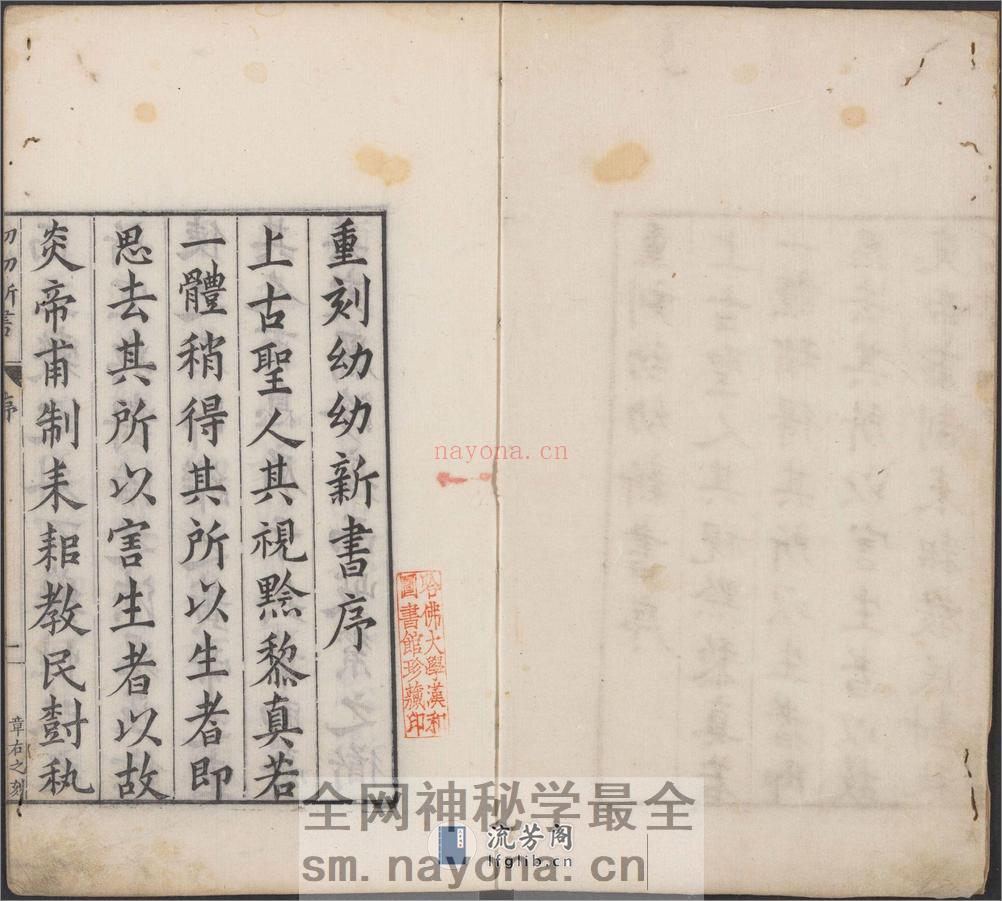 重刻幼幼新書序
上古聖人其視黔黎真若
一體稍得其所以生者即
思去其所以害生者以故
炎帝甫制耒耜教民蓺執
序
一
章右之刻
哈佛大學漢和
圖書館珍藏印
nayona.cn
全网神秘学最全
流芳阁
lfglib.cn
sm.nayona.cn